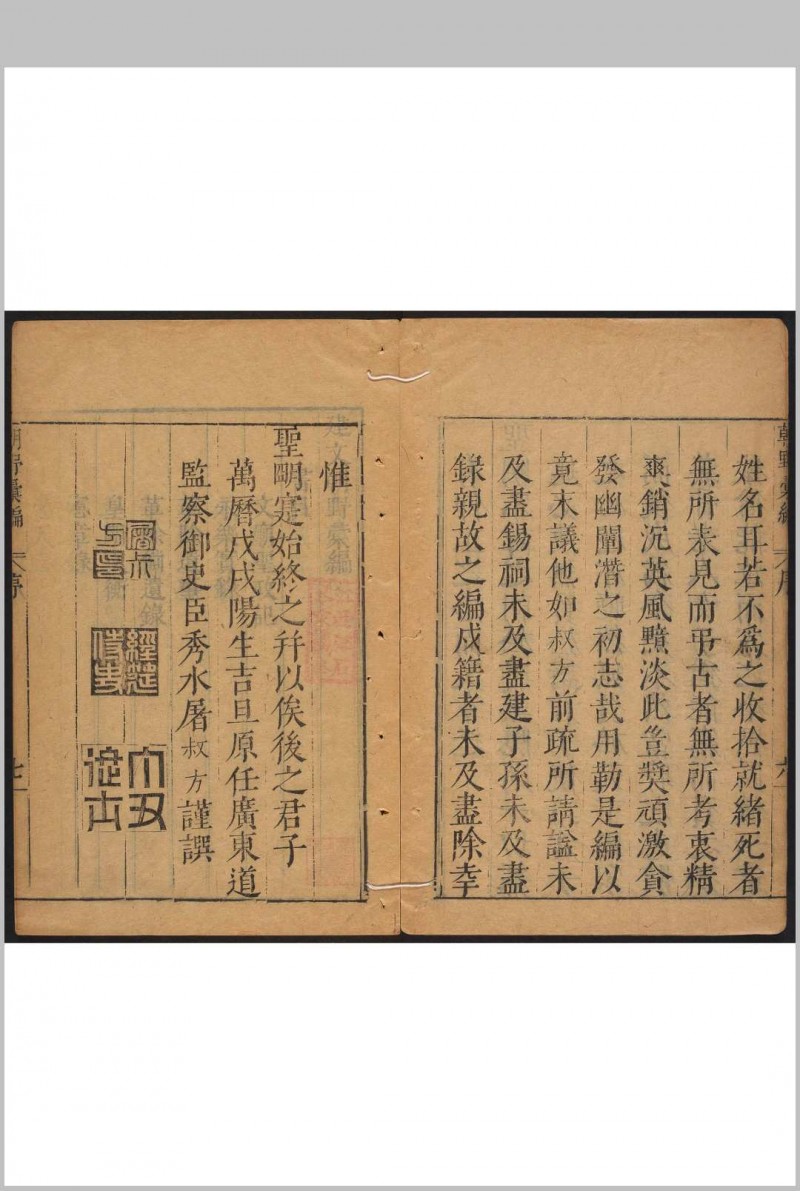 姓名耳若不爲之收拾就緒死者
無所表見而弔古者無所考衷精
爽銷沉英風黯淡此豈獎頑激貪
發幽闡潛之初志哉用勒是編以
竟末議他如叔方前疏所請謚未
及盡錫祠未及盡建子孫未及盡
錄親故之編戍籍者未及盡除幸
惟
聖明寔始終之幷以俟後之君子
萬曆戊戌陽生吉旦原任廣東道
監察御史臣秀水屠叔方謹譔
朝野彙編
序
七